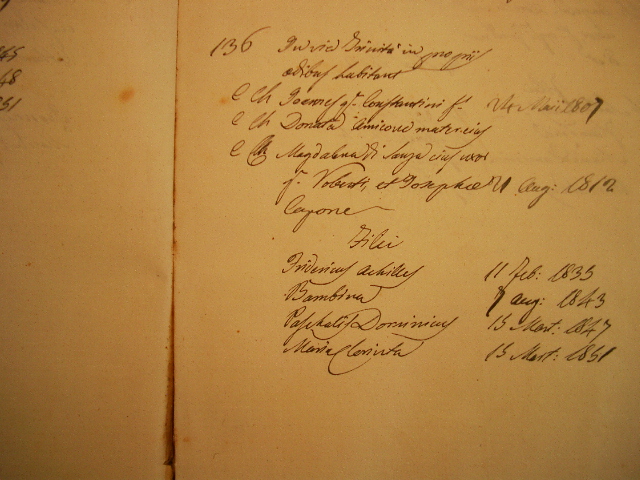 45
48
51
136 In vico Trinita' in propriis
ædibus habitant
C Ch Joannes q.m Constantini f.s 24 Maii 1807
C Ch Donata Amicone mater eius
C Ch Magdalena di Sanza eius uxor
q.m Roberti, et Josephæ 21 Aug: 1812
Capone
Filii
Fridericus Achilles 11 Feb: 1835
Bambina 7 Aug: 1843
Paschalis Dominicus 15 Mart: 1847
Maria Clorinta 15 Mart: 1851